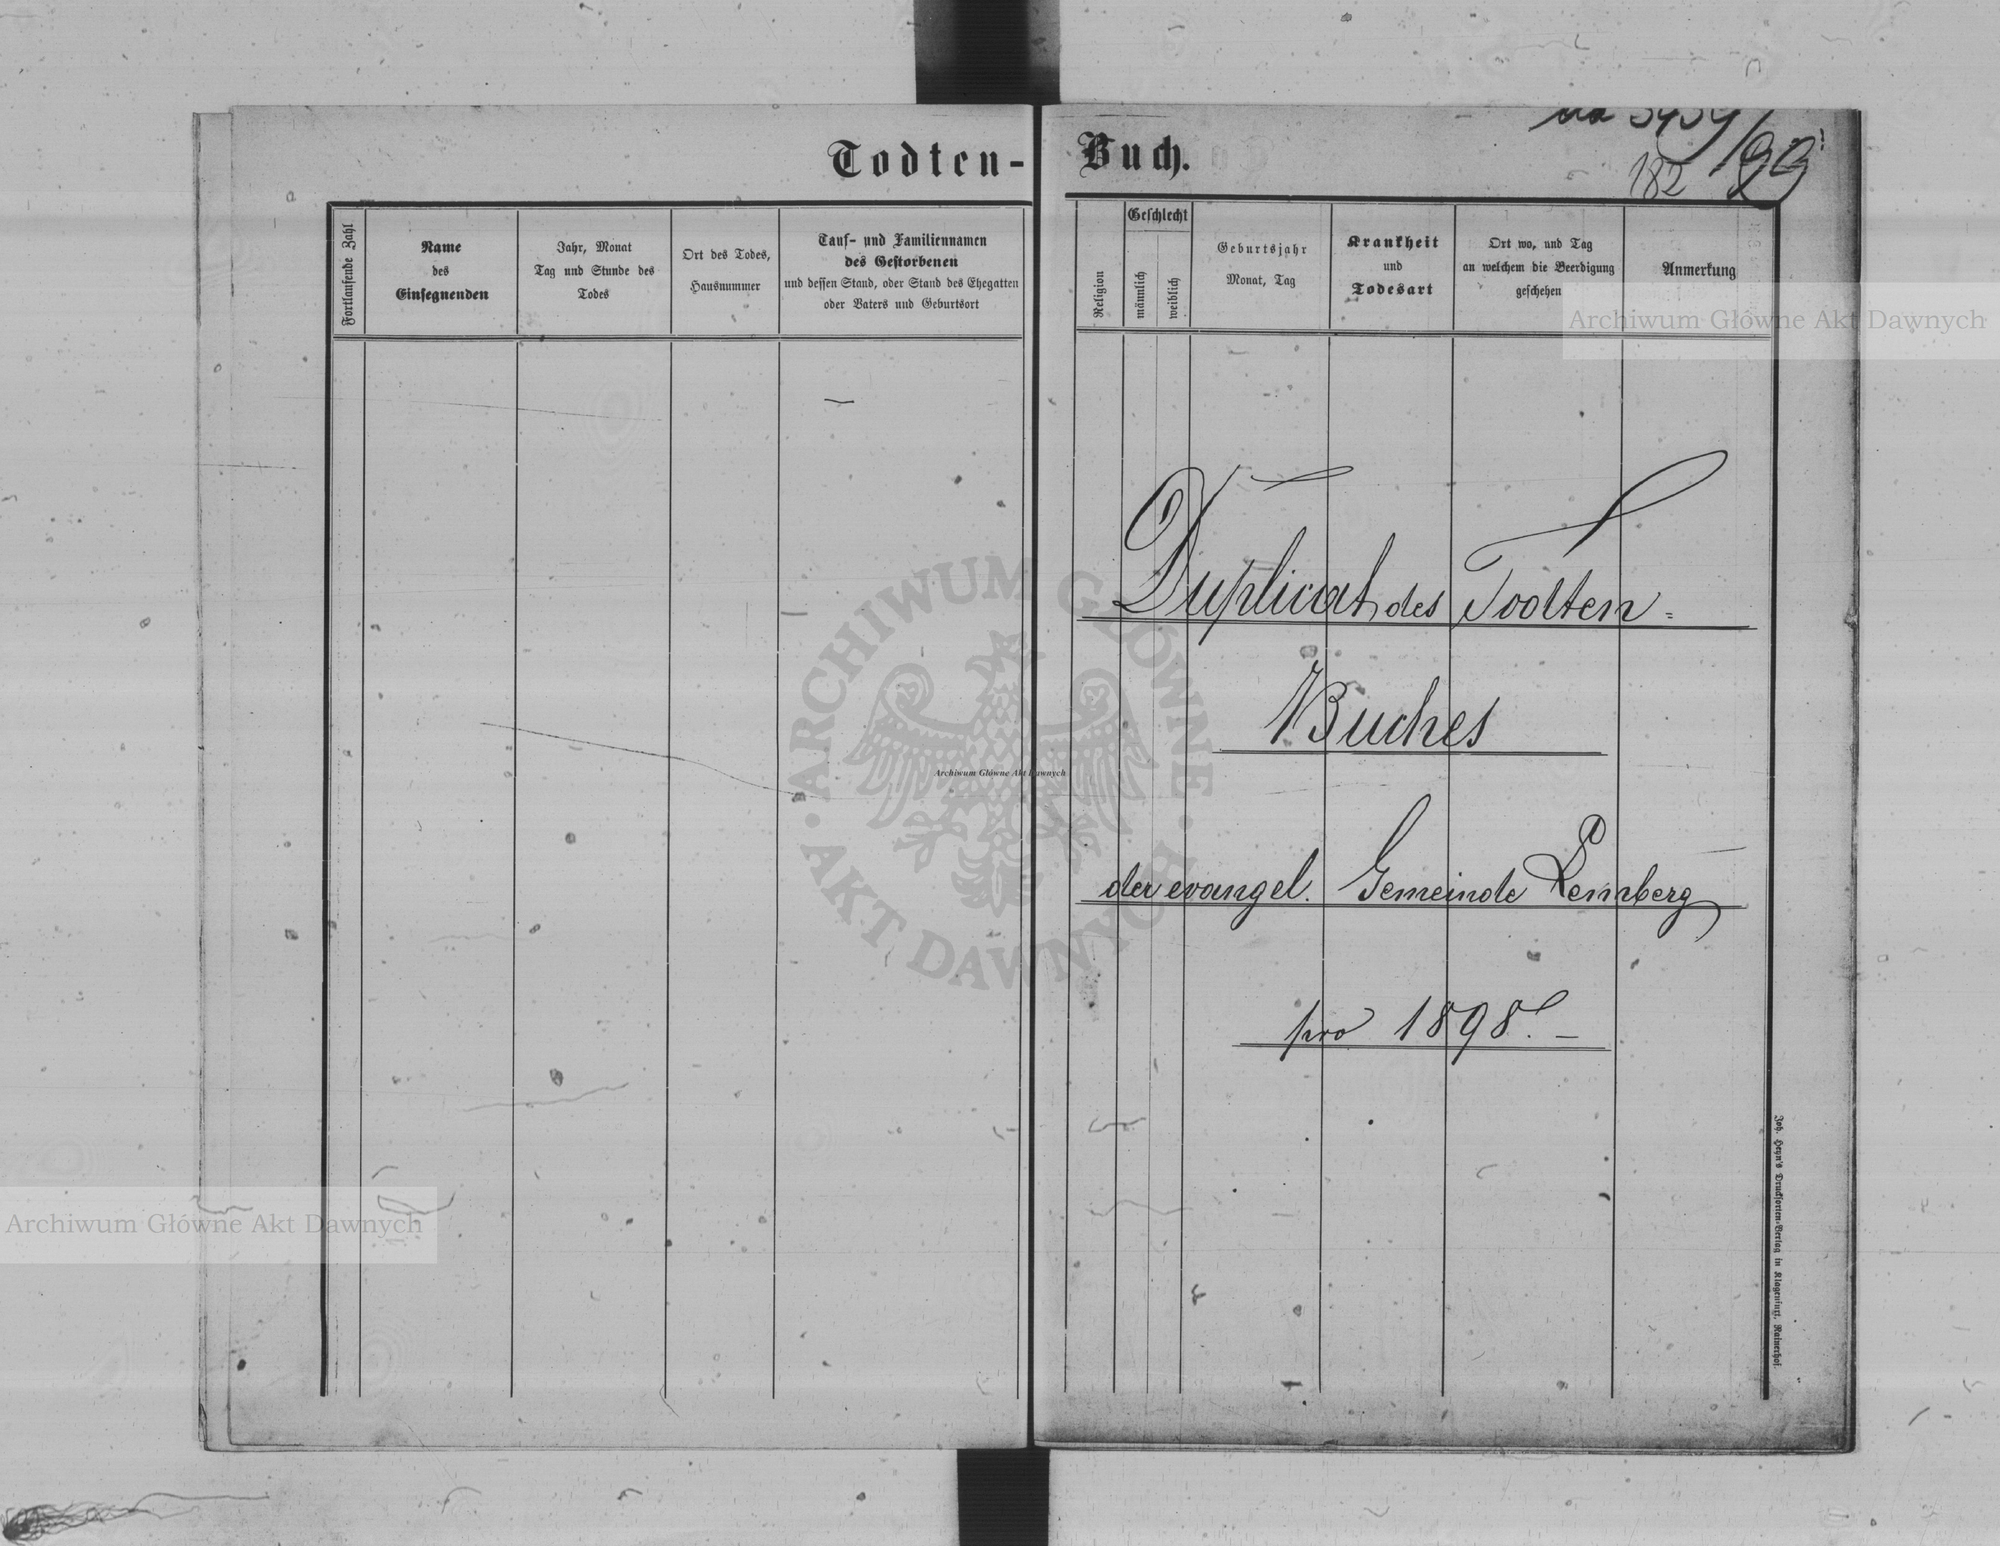 Todten-Buch.
182
Fortlaufende Zahl
Name
des
Einsegnenden
Jahr, Monat
Tag und Stunde des
Todes
Ort des Todes,
Hausnummer
Tauf- und Familiennamen
des Gestorbenen
und dessen Stand, oder Stand des Ehegatten
oder Vaters und Geburtsort
Religion
Geschlecht
männlich
weiblich
Geburtsjahr
Monat, Tag
Krankheit
und
Todesart
Ort wo, und Tag
an welchem die Beerdigung
geschehen
Anmerkung
Archiwum Główne Akt Dawnych
Duplicat des Todten-
Buches
der evangel. Gemeinde Lemberg
pro 1898.
ARCHIWUM GŁÓWNE AKT DAWNYCH
Archiwum Główne Akt Dawnych
Archiwum Główne Akt Dawnych
Joh. Heyn's Drucksorten-Verlag in Klagenfurt, Rainerhof.